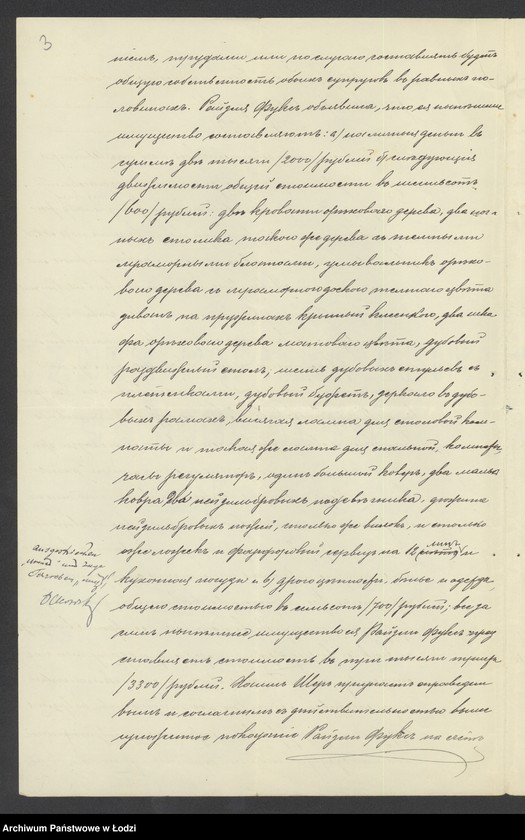 3
ніемъ, трудами или по случаю составлять будетъ
общую собственность обоихъ супруговъ въ равныхъ по-
ловинахъ. Райзля Фуксъ объявила, что ея нынѣшнее
имущество составляютъ: а) наличныя деньги въ
суммѣ двѣ тысячи /2000/ рублей б) слѣдующія
движимости общей стоимости въ шестьсотъ
/600/ рублей: двѣ кровати орѣховаго дерева, два ноч-
ныхъ столика такого же дерева съ темными
мраморными блатами, умывальникъ орѣхо-
ваго дерева съ мраморною доскою темнаго цвѣта
диванъ на пружинахъ крытый два шка-
фа орѣховаго дерева матоваго цвѣта, дубовый
раздвижной столъ, шесть дубовыхъ стульевъ съ
плетенками, дубовый буфетъ, зеркало въ дубо-
выхъ рамахъ, висячая лампа для столовой ком-
наты и такая же лампа для спальной комнаты,
часы регуляторъ, одинъ большой коверъ, два малые
ковра, два нейзильбровыхъ подсвѣчника, дюжина
нейзильбровыхъ ножей, столько же вилокъ, и столько
же ложекъ и фарфоровый сервизъ на 12 лицъ и
кухонная посуда и в) драгоцѣнности, бѣлье и одежда,
общею стоимостью въ семьсотъ /700/ рублей; все за
симъ нынѣшнее имущество ея Райзли Фуксъ пред-
ставляетъ стоимость въ три тысячи триста
/3300/ рублей. Хаимъ Шеръ призналъ справедли-
вымъ и согласнымъ съ дѣйствительностью выше
изложенное показаніе Райзли Фуксъ на счетъ
ausgestrichen
Archiwum Państwowe w Łodzi